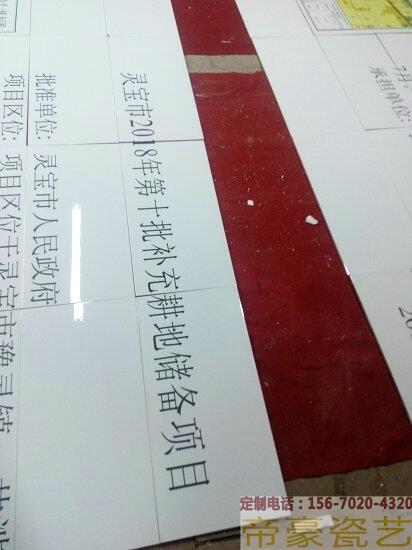 灵宝市2018年第十批补充耕地储备项目
批准单位: 灵宝市人民政府
项目区位: 项目区位于灵宝市豫灵镇
承担单位:
定制电话：156-7020-4320
帝豪瓷艺